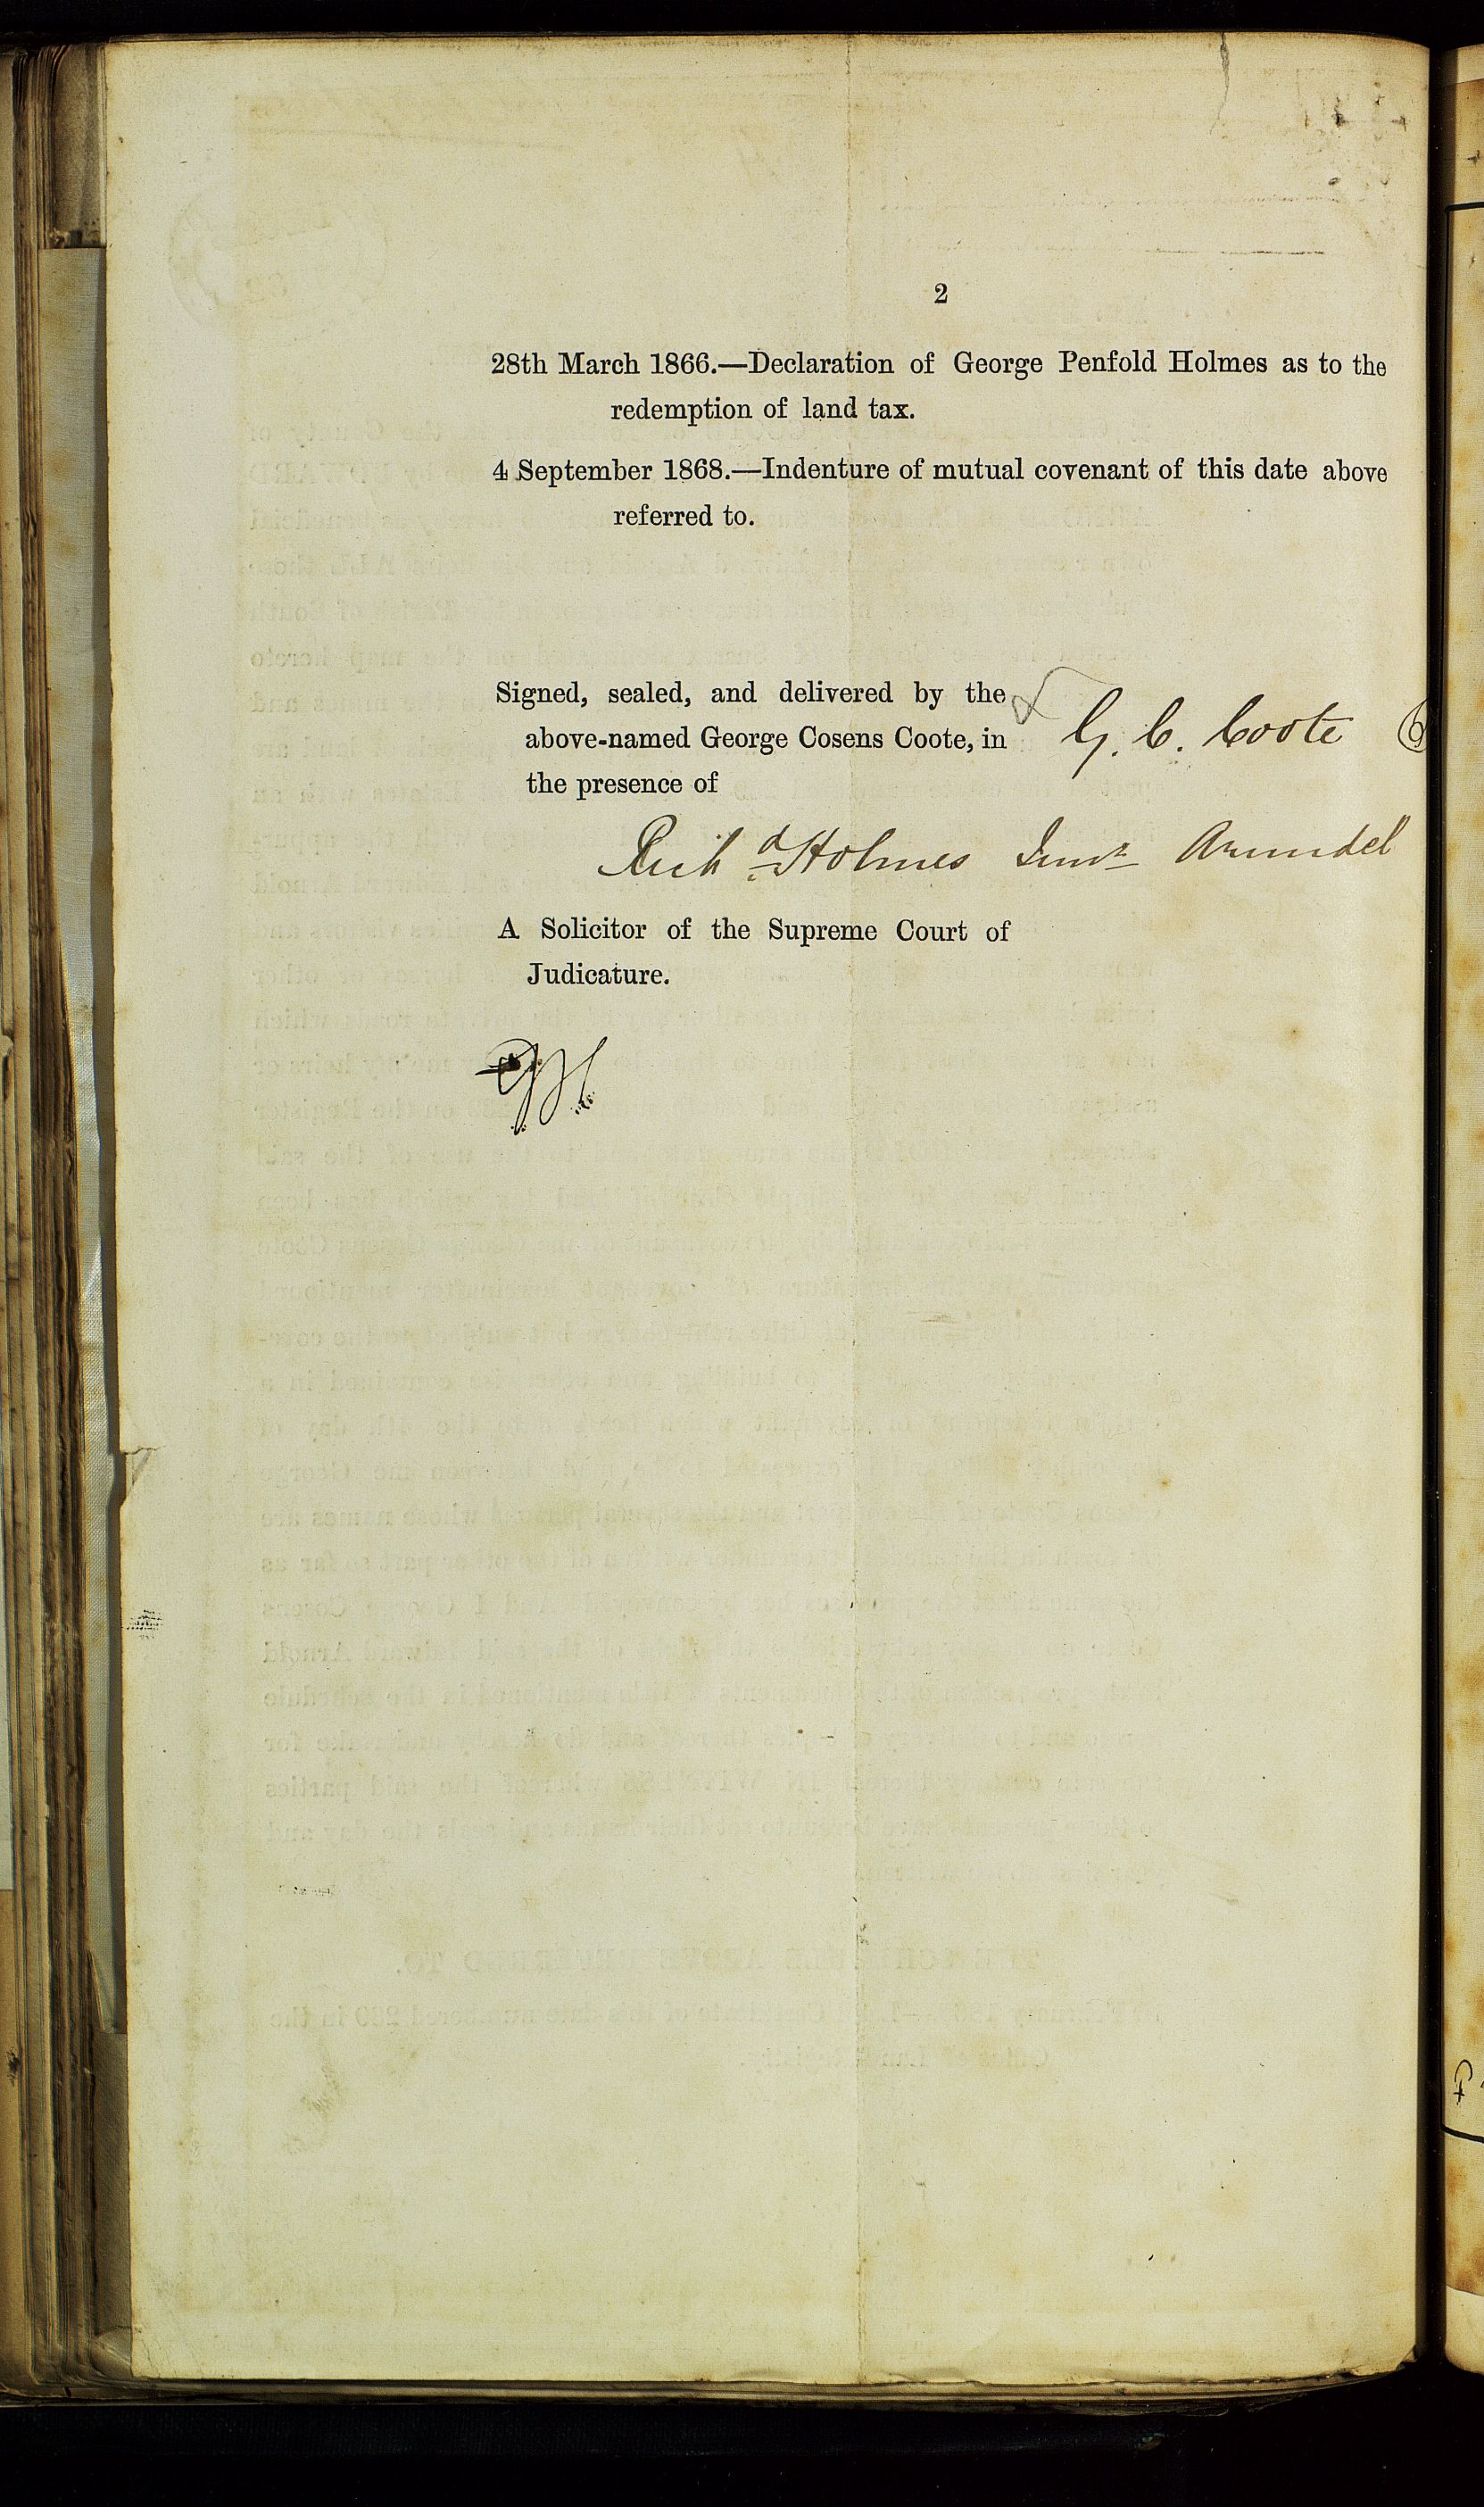 2
28th March 1866.—Declaration of George Penfold Holmes as to the
redemption of land tax.
4 September 1868.—Indenture of mutual covenant of this date above
referred to.
Signed, sealed, and delivered by the
above-named George Cosens Coote, in
the presence of
G. C. Coote
Richd Holmes Junr Arundel
A Solicitor of the Supreme Court of
Judicature.